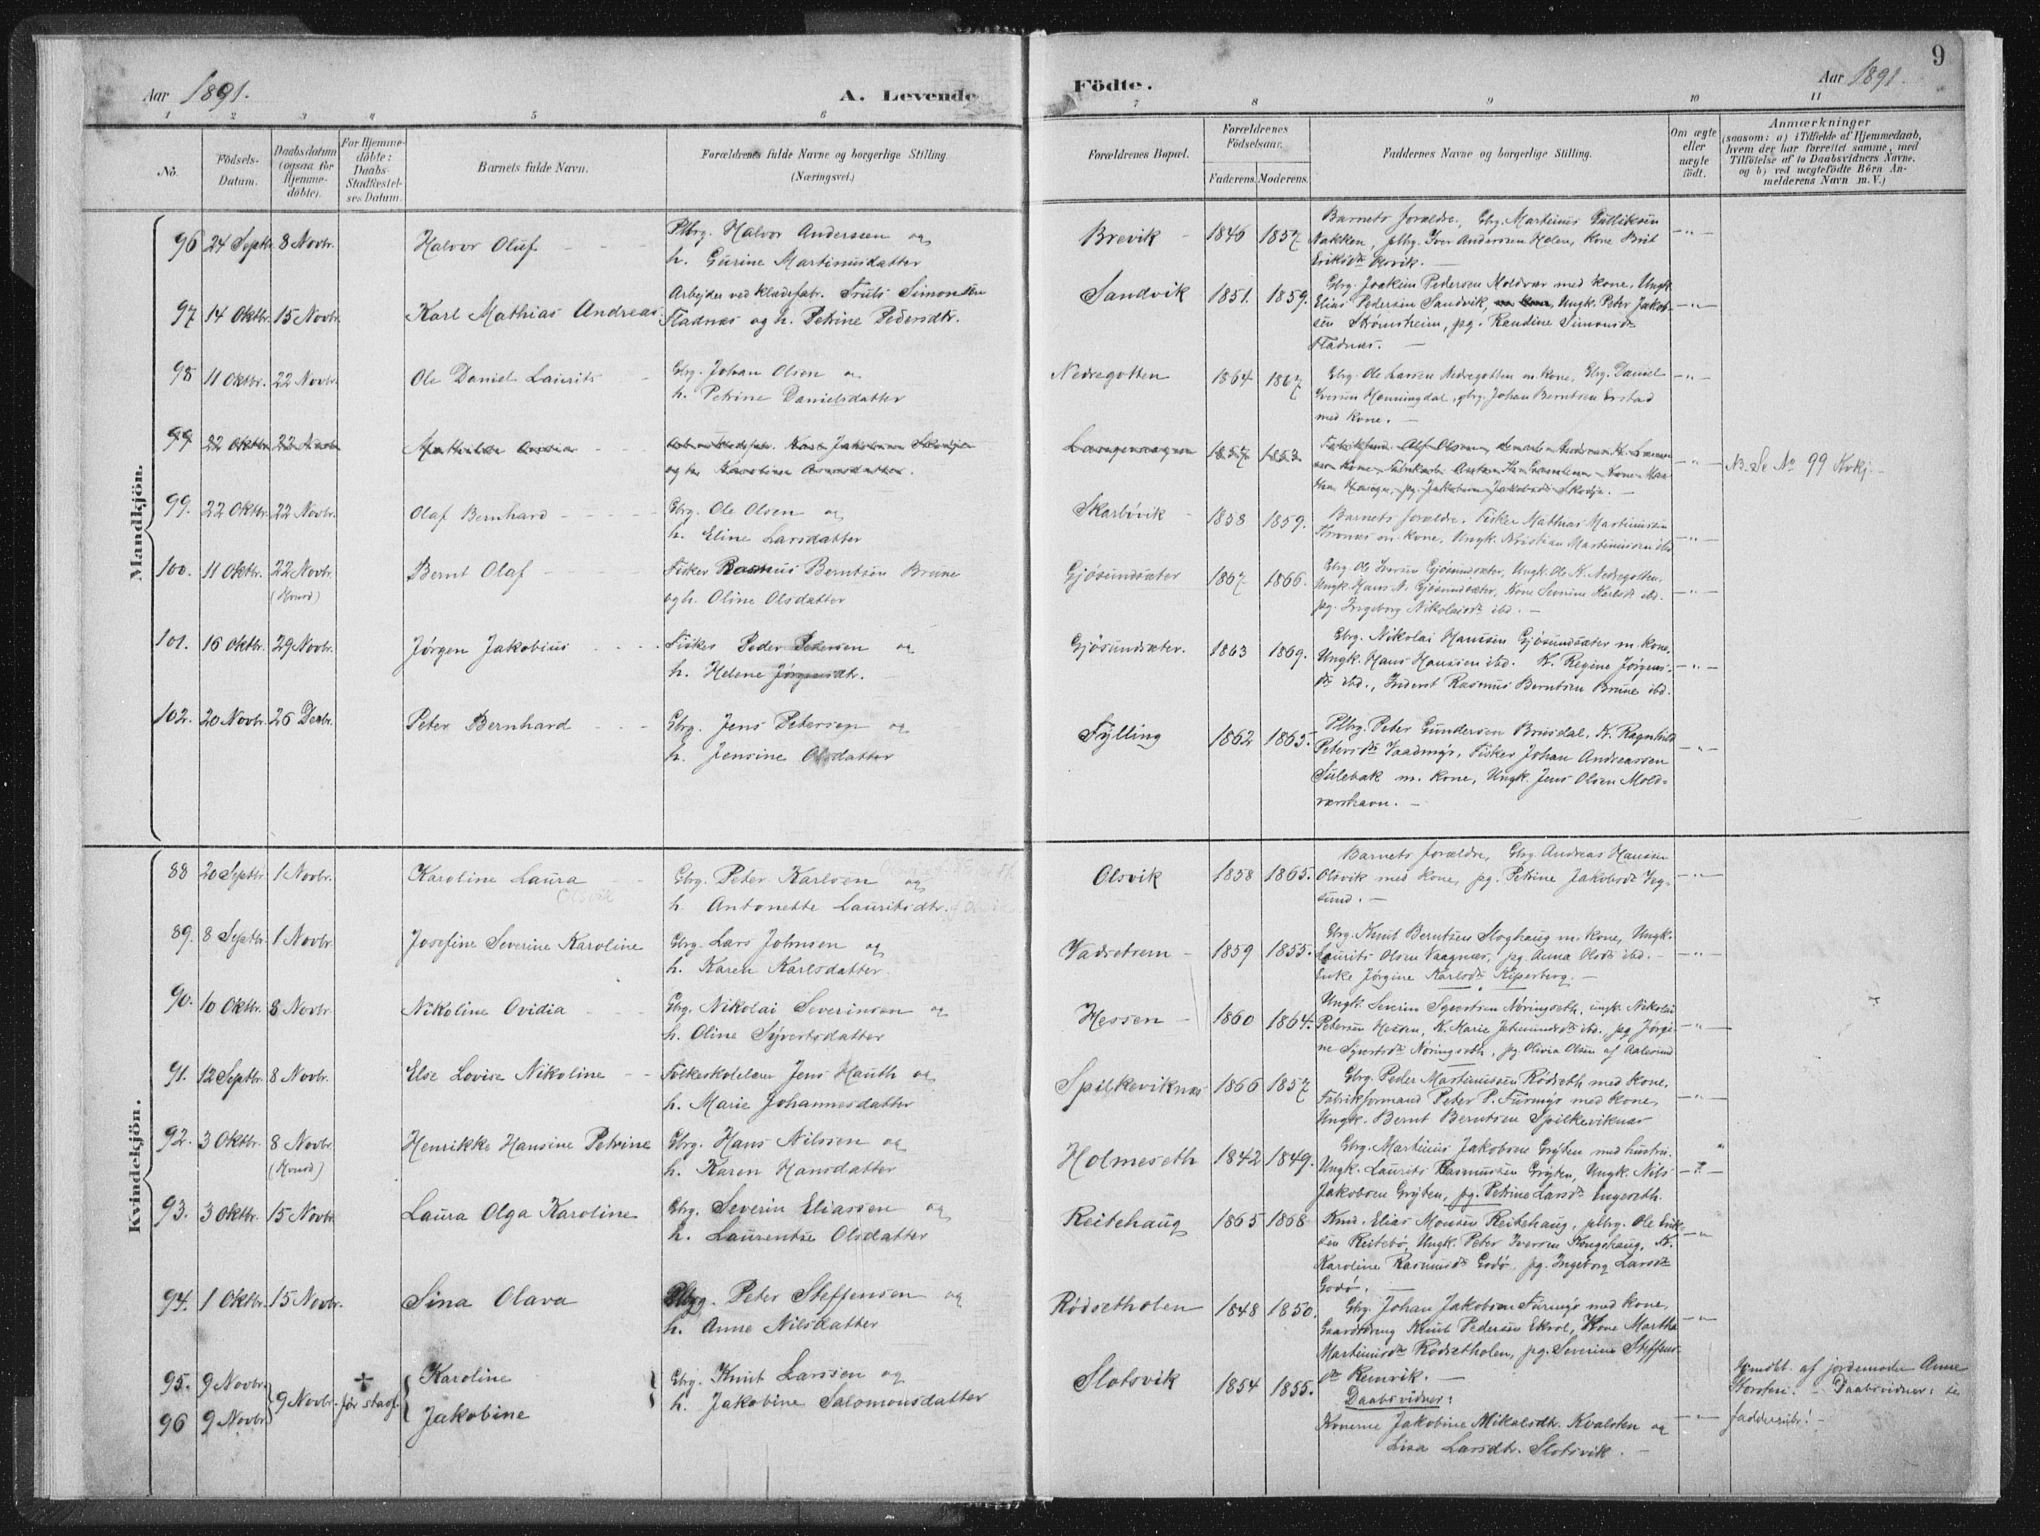 Aar 1891.
A. Levende
Födte.
Aar 1891.
9
1 2 3 4 5 6 7 8 9 10 11
No.
Födsels-Datum.
Daabsdatum (ogsaa for Hjemme-döbte).
For Hjemme-döbte: Daabs-Stadfæstel-ses Datum.
Barnets fulde Navn.
Forældrenes fulde Navne og borgerlige Stilling.
(Næringsvei.)
Forældrenes Bopæl.
Forældrenes Födselsaar.
Faderens. Moderens.
Faddernes Navne og borgerlige Stilling.
Om ægte eller uægte födt.
Anmærkninger
(saasom: a) i Tilfælde af Hjemmedaab,
hvem der har forrettet samme, med
Tilföielse af to Daabsvidners Navne,
og b) ved uægtefödte Börn An-
melderens Navn m. V.)
Mandkjön.
96 24 Septbr. 8 Novbr. Halvor Oluf Plbrg. Halvor Anderssen og
h. Gurine Martinusdatter
Brevik 1846 1857 Barnets forældre, Gbrg. Martinus Gulliksen
Nakken, plbrg. Iver Anderssen Holen, Kone Brit
Eriksdtr. Brevik. —
97 14 Oktbr. 15 Novbr. Karl Mathias Andreas. Arbejder ved klædefabr. Truls Simonsen
Fladnæs og h. Petrine Pedersdtr.
Sandvik 1851. 1859. Gbrg. Joakim Pedersen Moldvær med kone, Ungk.
Elias Pedersen Sandvik, Ungk. Peter Jakob-
sen Strømsheim, pg. Randine Simonsdtr.
Fladnæs. —
98 11 Oktbr. 22 Novbr. Ole Daniel Laurits Gbrg. Johan Olsen og
h. Petrine Danielsdatter
Nedregotten 1864 1867 Gbrg. Ole Larsen Nedregotten m. kone, Gbrg. Daniel
Iversen Honningdal, gbrg. Johan Berntsen Erstad
med kone. —
99 22 Oktbr. 22 Novbr. Mathilde Ovidia
og h. Karoline
1857 1853 NB. Se No 99 Kvkj. —
99. 22 Oktbr. 22 Novbr. Olaf Bernhard Gbrg. Ole Olsen og
h. Eline Larsdatter
Skarbövik 1858 1859. Barnets forældre, Fisker Mathias Martinussen
m. kone, Ungk. Kristian Martinussen ibd.
100. 11 Oktbr. 22 Novbr. Bernt Olaf Fisker Rasmus Berntsen Brune
(Hovsd) og h. Oline Olsdatter
Gjösundsæter 1867 1866. Gbrg. Ole Iversen Gjösundsæter, Ungk. Ole K. Nedregotten,
Ungk. Hans N. Gjösundsæter, Kone Severine Karlsdtr. ibd.
pg. Ingeborg Nikolaisdtr. ibd. —
101. 16 Oktbr. 29 Novbr. Jørgen Jakobius Fisker Peder Petersen og
h. Helene Jørgensdtr.
Gjösundsæter. 1863 1869. Gbrg. Nikolai Hanssen Gjösundsæter m. kone,
Ungk. Hans Hanssen ibd. K. Regine Jørgens-
dtr. ibd., Inderst Rasmus Berntsen Brune ibd.
102. 20 Novbr. 26 Decbr. Peter Bernhard Gbrg. Jens Petersen og
h. Jensine Olsdatter
Fylling 1862 1865. Plbrg. Peter Gundersen Brusdal, K. Ragnhild
Petersdtr. Vaadmyr, Fisker Johan Andreassen
Sulebak m. kone, Ungk. Jens Olsen Mold-
værshavn. —
Kvindekjön.
88 20 Septbr. 1 Novbr. Karoline Laura Gbrg. Peter Karlsen og
Olsvik h. Antonette Lauritsdtr.
Olsvik 1858 1865. Barnets forældre, Gbrg. Andreas Hanssen
Olsvik med kone, pg. Petrine Jakobsdtr. Veg-
sund. —
89. 8 Septbr. 1 Novbr. Josefine Severine Karoline Gbrg. Lars Johnsen og
h. Karen Karlsdatter.
Vadsetrem 1859 1855. Gbrg. Knut Berntsen Sloghaug m. kone, Ungk.
Laurits Olsen Vaagnæs, pg. Anna Olsdtr. ibd. —
Enke Jørgine Karlsdtr. Kiperberg. —
90. 10 Oktbr. 8 Novbr. Nikoline Ovidia Gbrg. Nikolai Severinsen og
h. Oline Syvertsdatter
Hessen 1860 1864. Ungk. Severin Syvertsen Nöringseth, ungk. Nikolai
Petersen Hessen, K. Marie Jetmundsdtr. ibd., pg. Jørgi-
ne Syvertsdtr. Nöringseth, pg. Olivia Olsen af Aalesund
91. 12 Septbr. 8 Novbr. Else Lovise Nikoline Folkeskolelærer Jens Hauth og
h. Marie Johannesdatter
Spilkeviknæs 1866 1857 Gbrg. Peder Martinussen Rödseth med kone,
Fabrikformand Peter P. Furmyr med kone,
Ungk. Bernt Berntsen Spilkeviknæs
92. 3 Oktbr. 8 Novbr. Henrikke Hansine Petrine Gbrg. Hans Nilssen og
(Hovsd) h. Karen Hansdatter
Holmeseth 1842 1849. Gbrg. Martinus Jakobsen Gryten med hustru.
Ungk. Laurits Rasmussen Gryten, Ungk. Nils
Jakobsen Gryten, pg. Petrine Larsdtr. Engeseth.
93. 3 Oktbr. 15 Novbr. Laura Olga Karoline Gbrg. Severin Eliassen og
h. Laurentse Olsdatter
Reitehaug 1865 1868 Elias Monsen Reitehaug, plbrg. Ole Erik-
sen Reitebö, Ungk. Peter Iversen Kongshaug, K.
Karoline Rasmusdtr. Godö, pg. Ingeborg Larsdtr.
Godö. —
94. 1 Oktbr. 15 Novbr. Sina Olava Plbrg. Peter Steffensen og
h. Anne Nilsdatter
Rödsetholen 1848 1850. Gbrg. Johan Jakobsen Furmyr med kone,
Gaardbrug Knut Pedersen Ekrol, Kone Martha
Martinusdtr. Rödsetholen, pg. Severine Steffens-
dtr. Remvik. —
95. 9 Novbr. 9 Novbr. + før stadf. Karoline Gbrg. Knut Larssen og
96 9 Novbr. Jakobine h. Jakobine Salomonsdatter
Slotsvik 1854 1855. Daabsvidner:
Konerne Jakobine Mikalsdtr. Kvalsten og
Lisa Larsdtr. Slotsvik. —
Hjemdöbt af jordemoder Anne
Storsten. – Daabsvidner: se
fadderrubr.! —